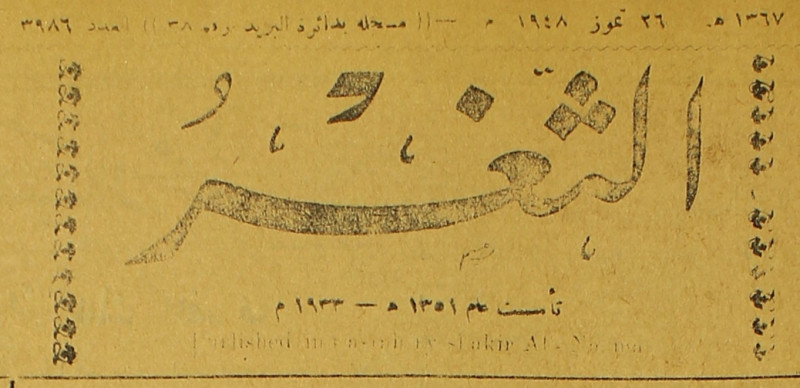 ١٣٦٧ هـ. ٢٦ تموز ١٩٤٨ م —(( مسجله بدائرة البريد رقم ٣٨ )) العدد ٣٩٨٦
الثغر
تأسست عام ١٣٥١ هـ — ١٩٣٣ م
Published in Basrah by Shakir